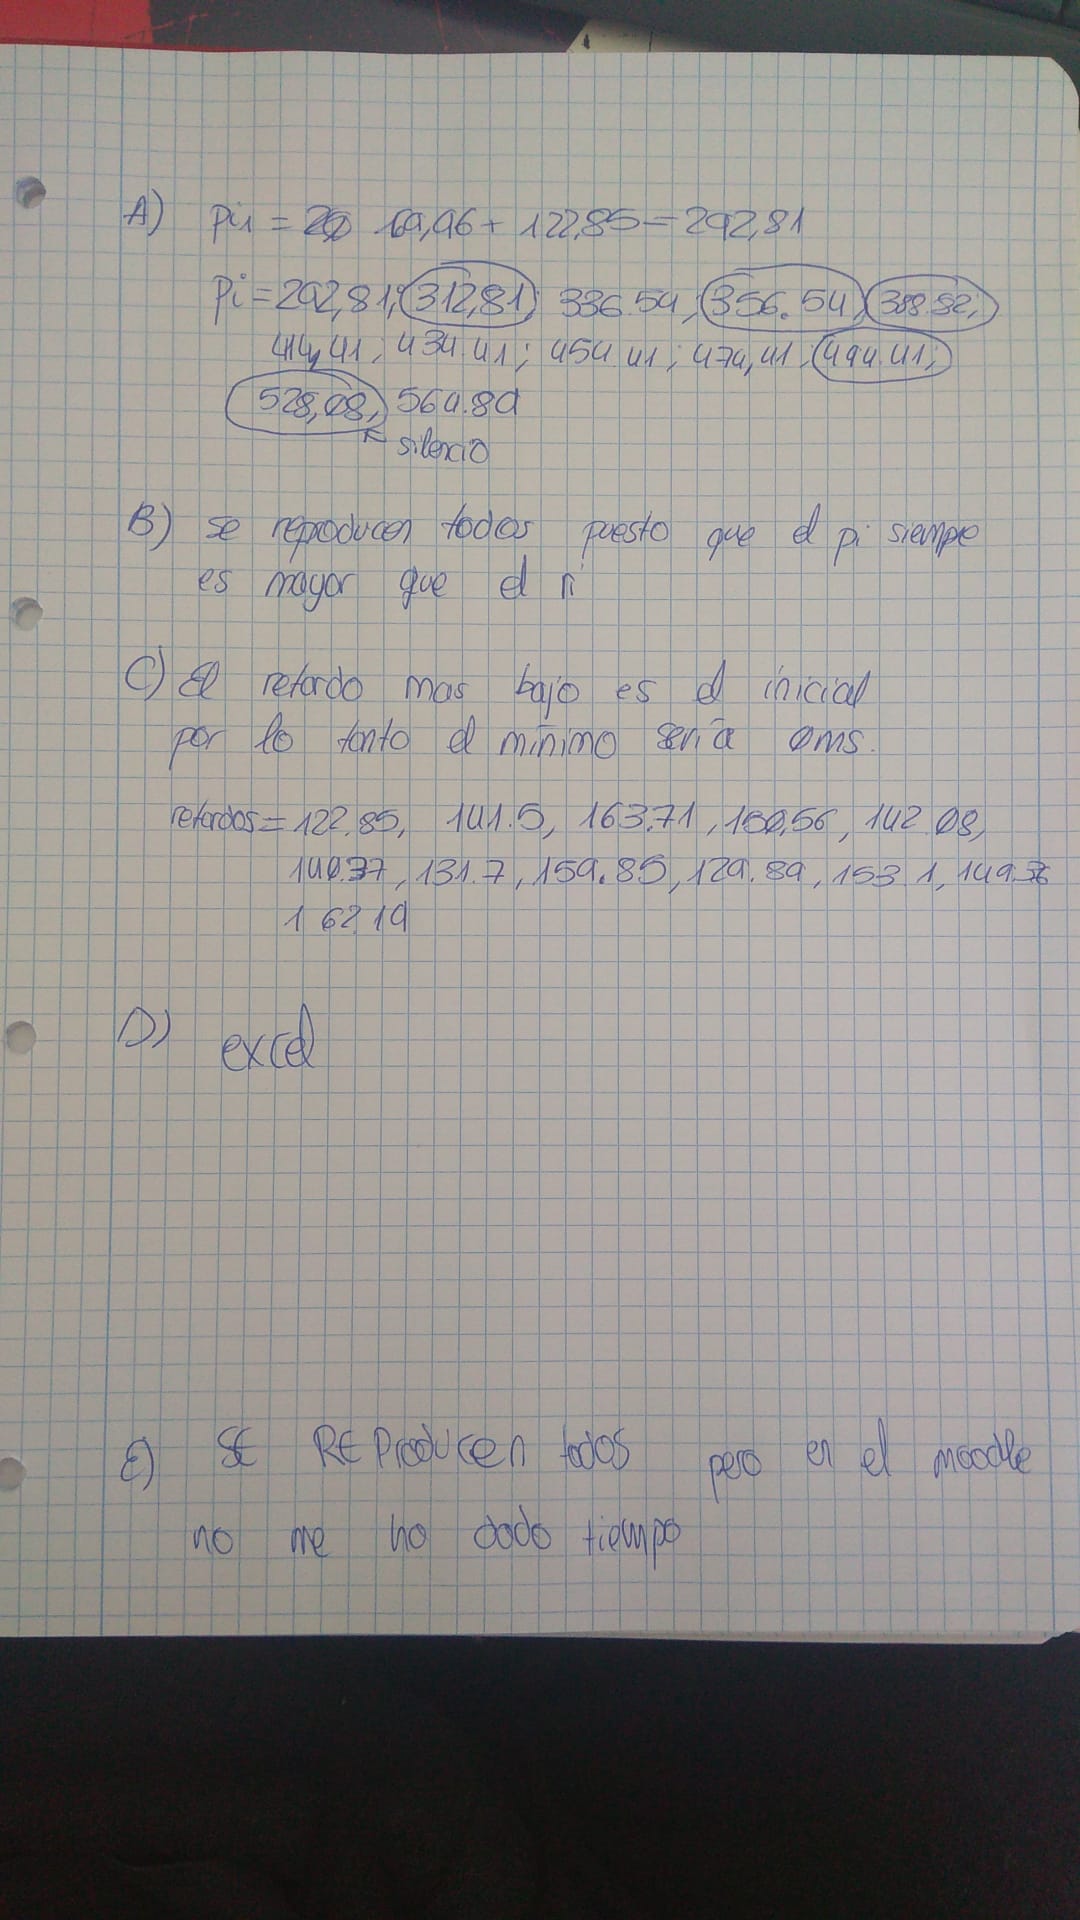 A) pi1 = 169,96 + 122,85 = 292,81
pi = 292,81; 312,81; 336.54; 356.54; 388.82;
414,41; 434.41; 454.41; 474,41; 494.41;
528,08; 564.89
silencio
B) se reproducen todos puesto que el pi siempe
es mayor que el ri
C) El retardo mas bajo es el inicial
por lo tanto el mínimo sería 0ms.
retardos = 122.85, 141.5, 163.71, 150,56, 142.08,
140.37, 131.7, 159.85, 129.89, 153.1, 149.36
162.19
D) excel
E) SE REProducen todos pero en el moodle
no me ha dado tiempo